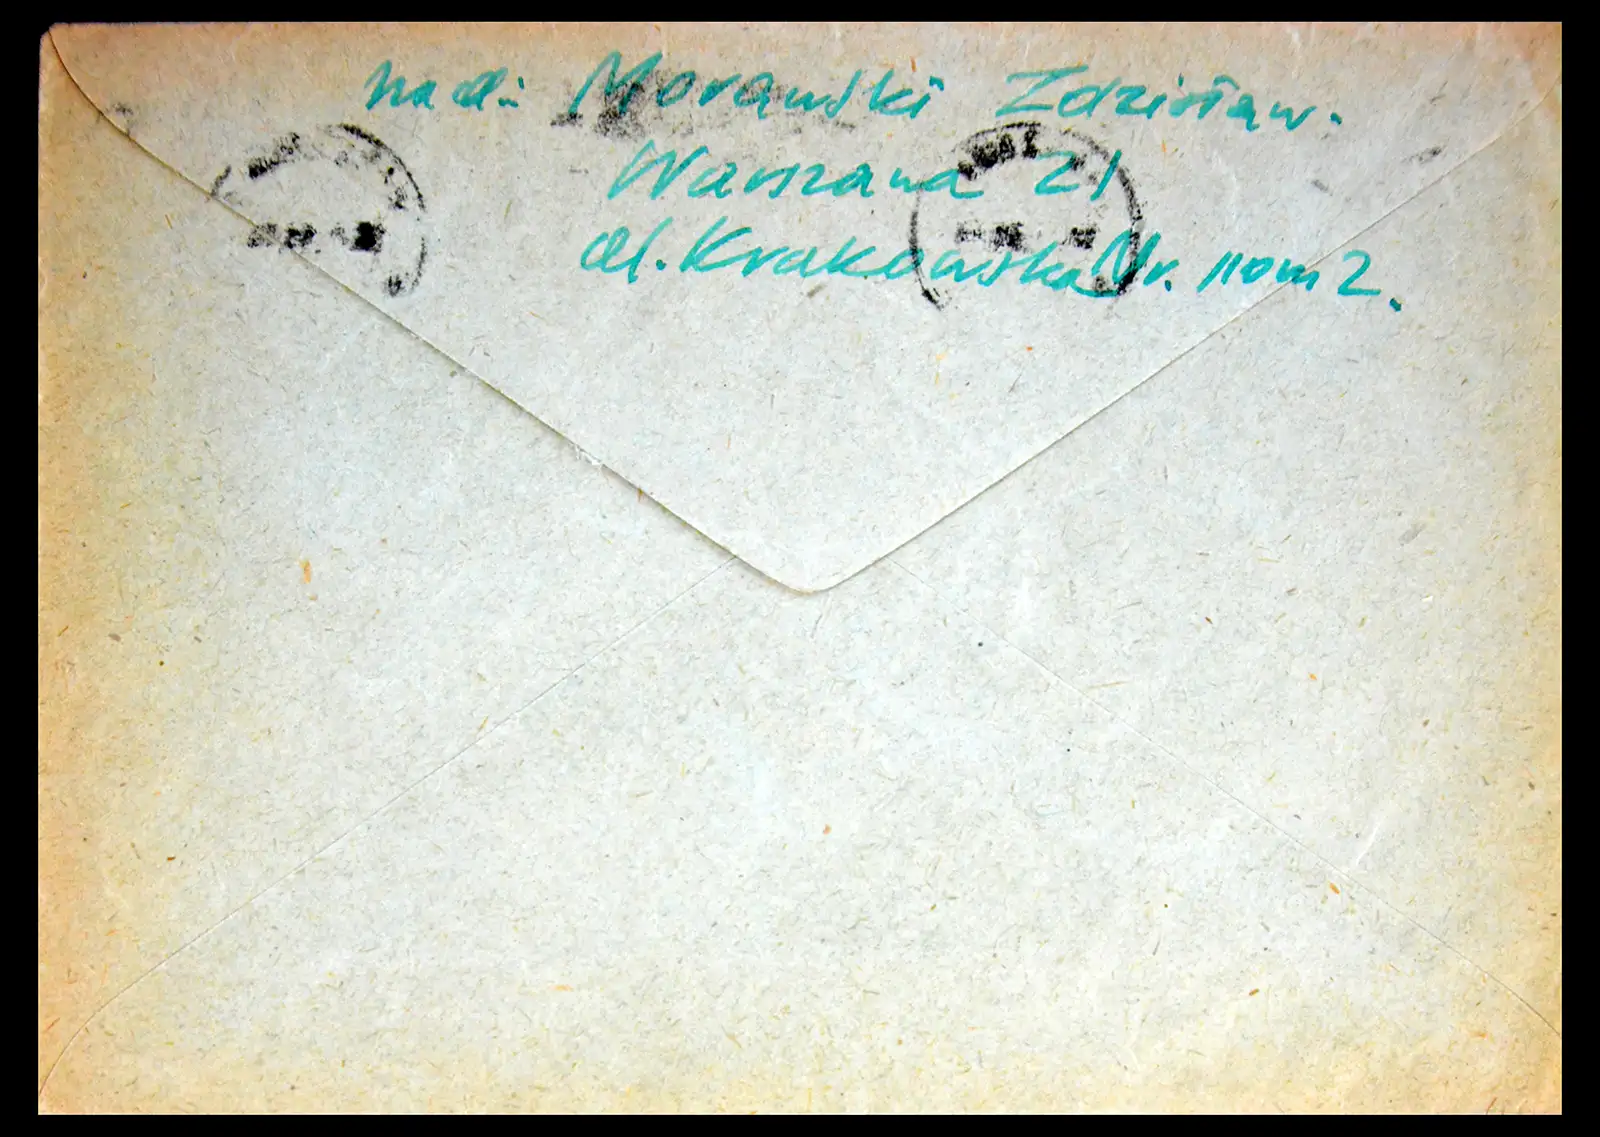 nad: Morawski Zdzisław.
Warszawa 21
al. Krakowska Nr. 110 m 2.